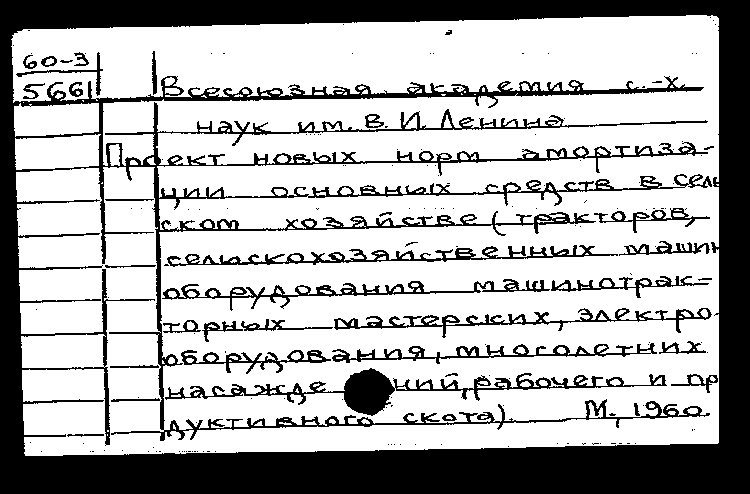 60-3
5661 Всесоюзная академия с.-х.
наук им. В. И. Ленина
Проект новых норм амортиза-
ции основных средств в сель
ском хозяйстве (тракторов,
сельскохозяйственных машин
оборудования машинотрак=
торных мастерских, электро-
оборудования, многолетних
насажде ний, рабочего и пр
дуктивного скота). М., 1960.